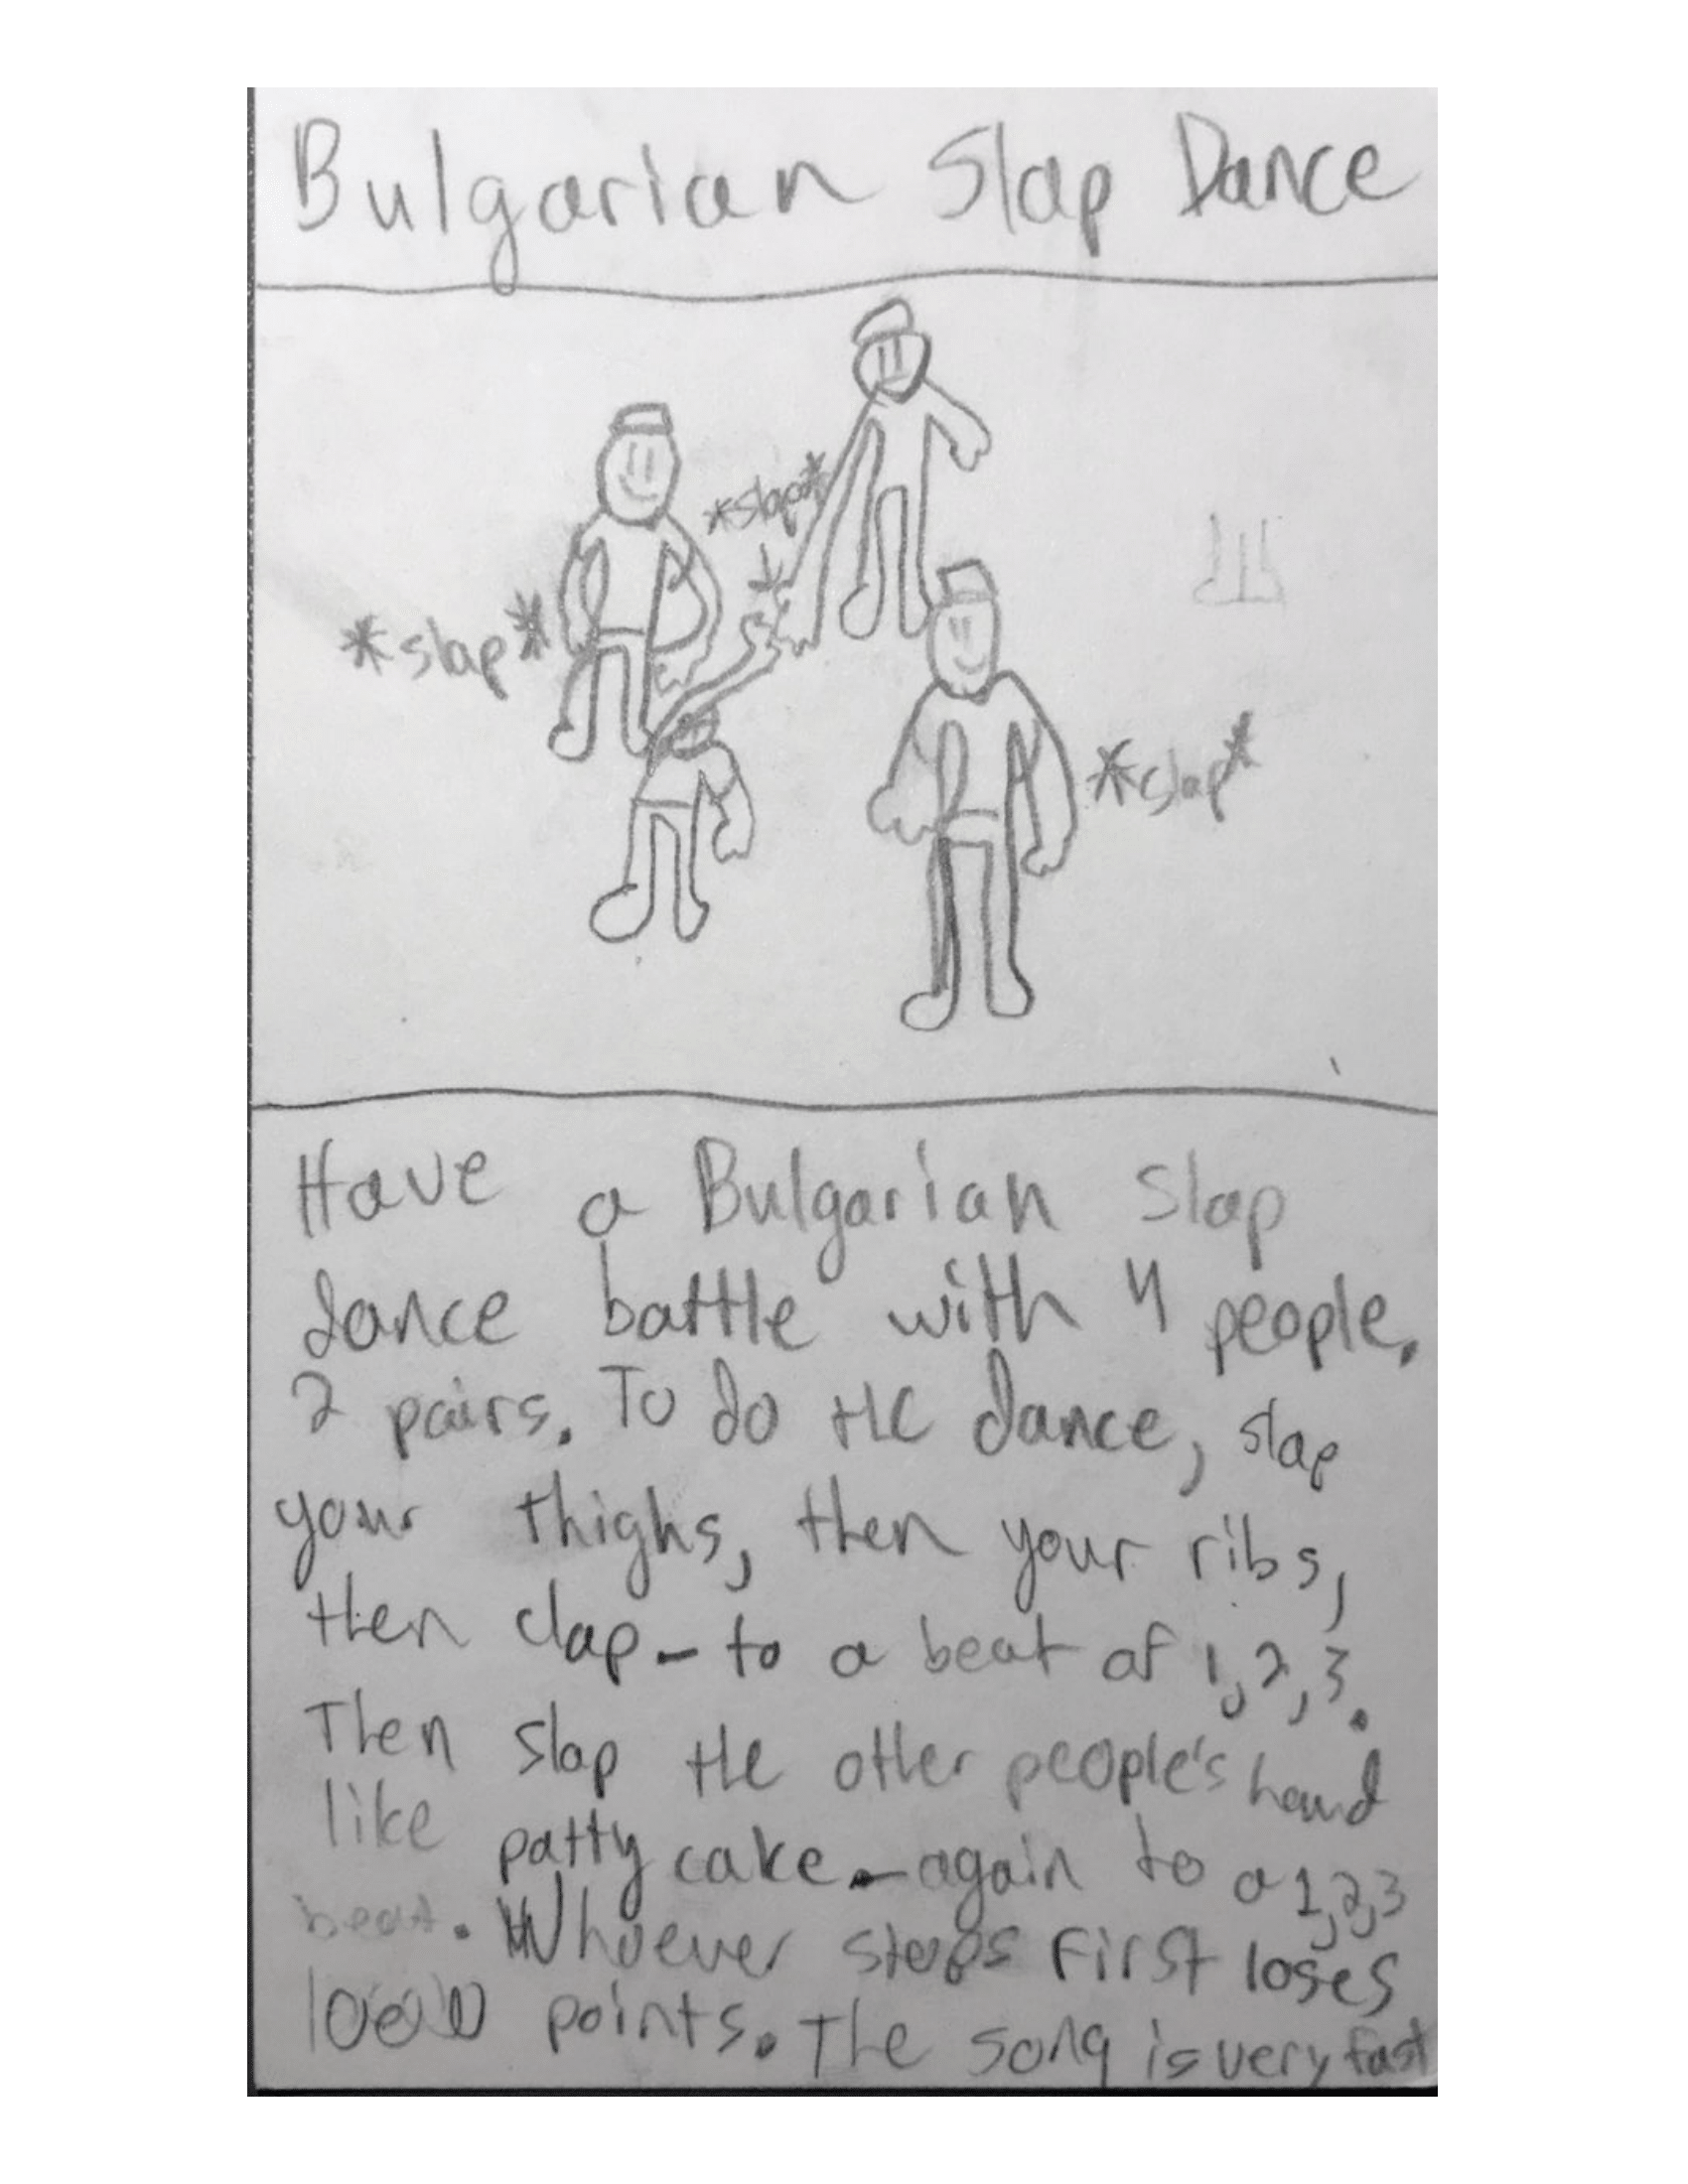 Bulgarian Slap Dance
*slap*
*slap*
*slap*
Have a Bulgarian Slap
dance battle with 4 people.
2 pairs. To do the dance, slap
your thighs, then your ribs,
then clap - to a beat of 1,2,3.
Then slap the other people's hand
like patty cake - again to a 1,2,3
beat. Whoever stops first loses
points. The song is very fast